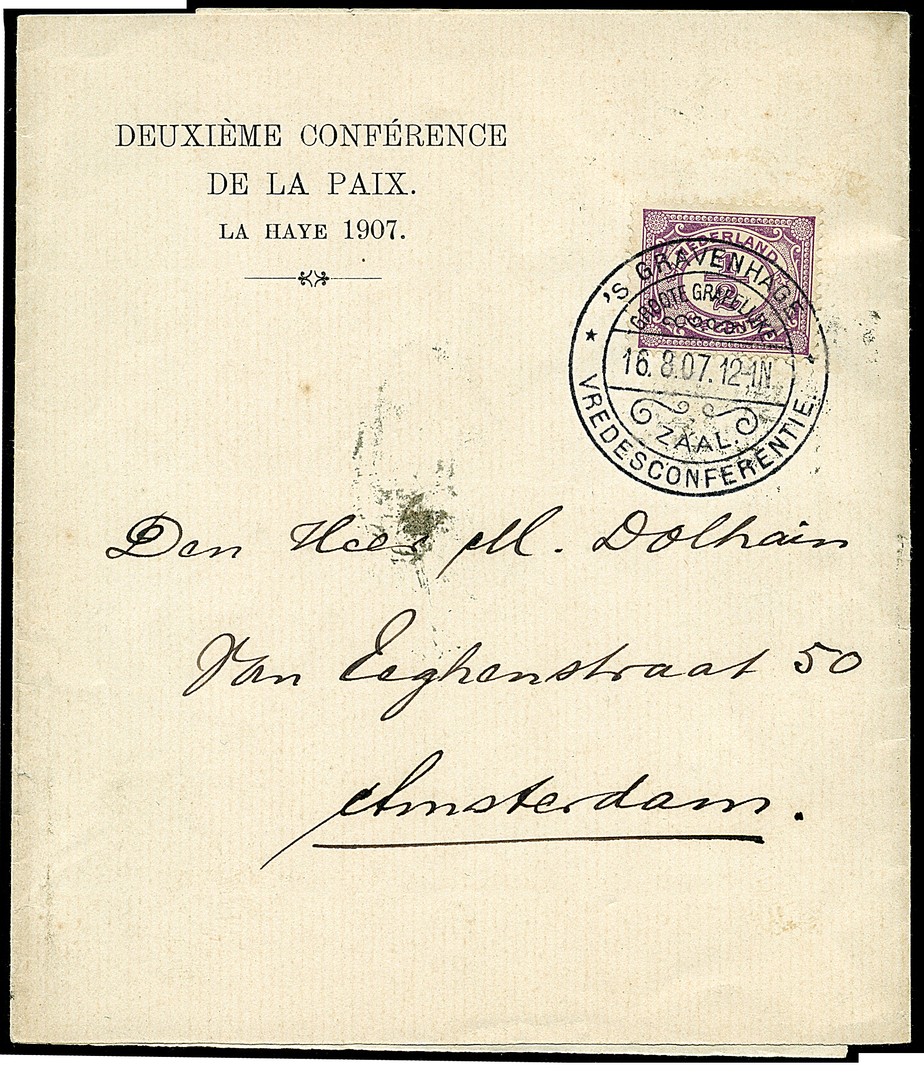 DEUXIÈME CONFÉRENCE
DE LA PAIX.
LA HAYE 1907.
NEDERLAND
1/2
'S GRAVENHAGE
GROOTE GRAFELIJKE
16.8.07.12-1N.
ZAAL.
VREDESCONFERENTIE.
Den Heer M. Dolhain
Van Eeghenstraat 50
Amsterdam.